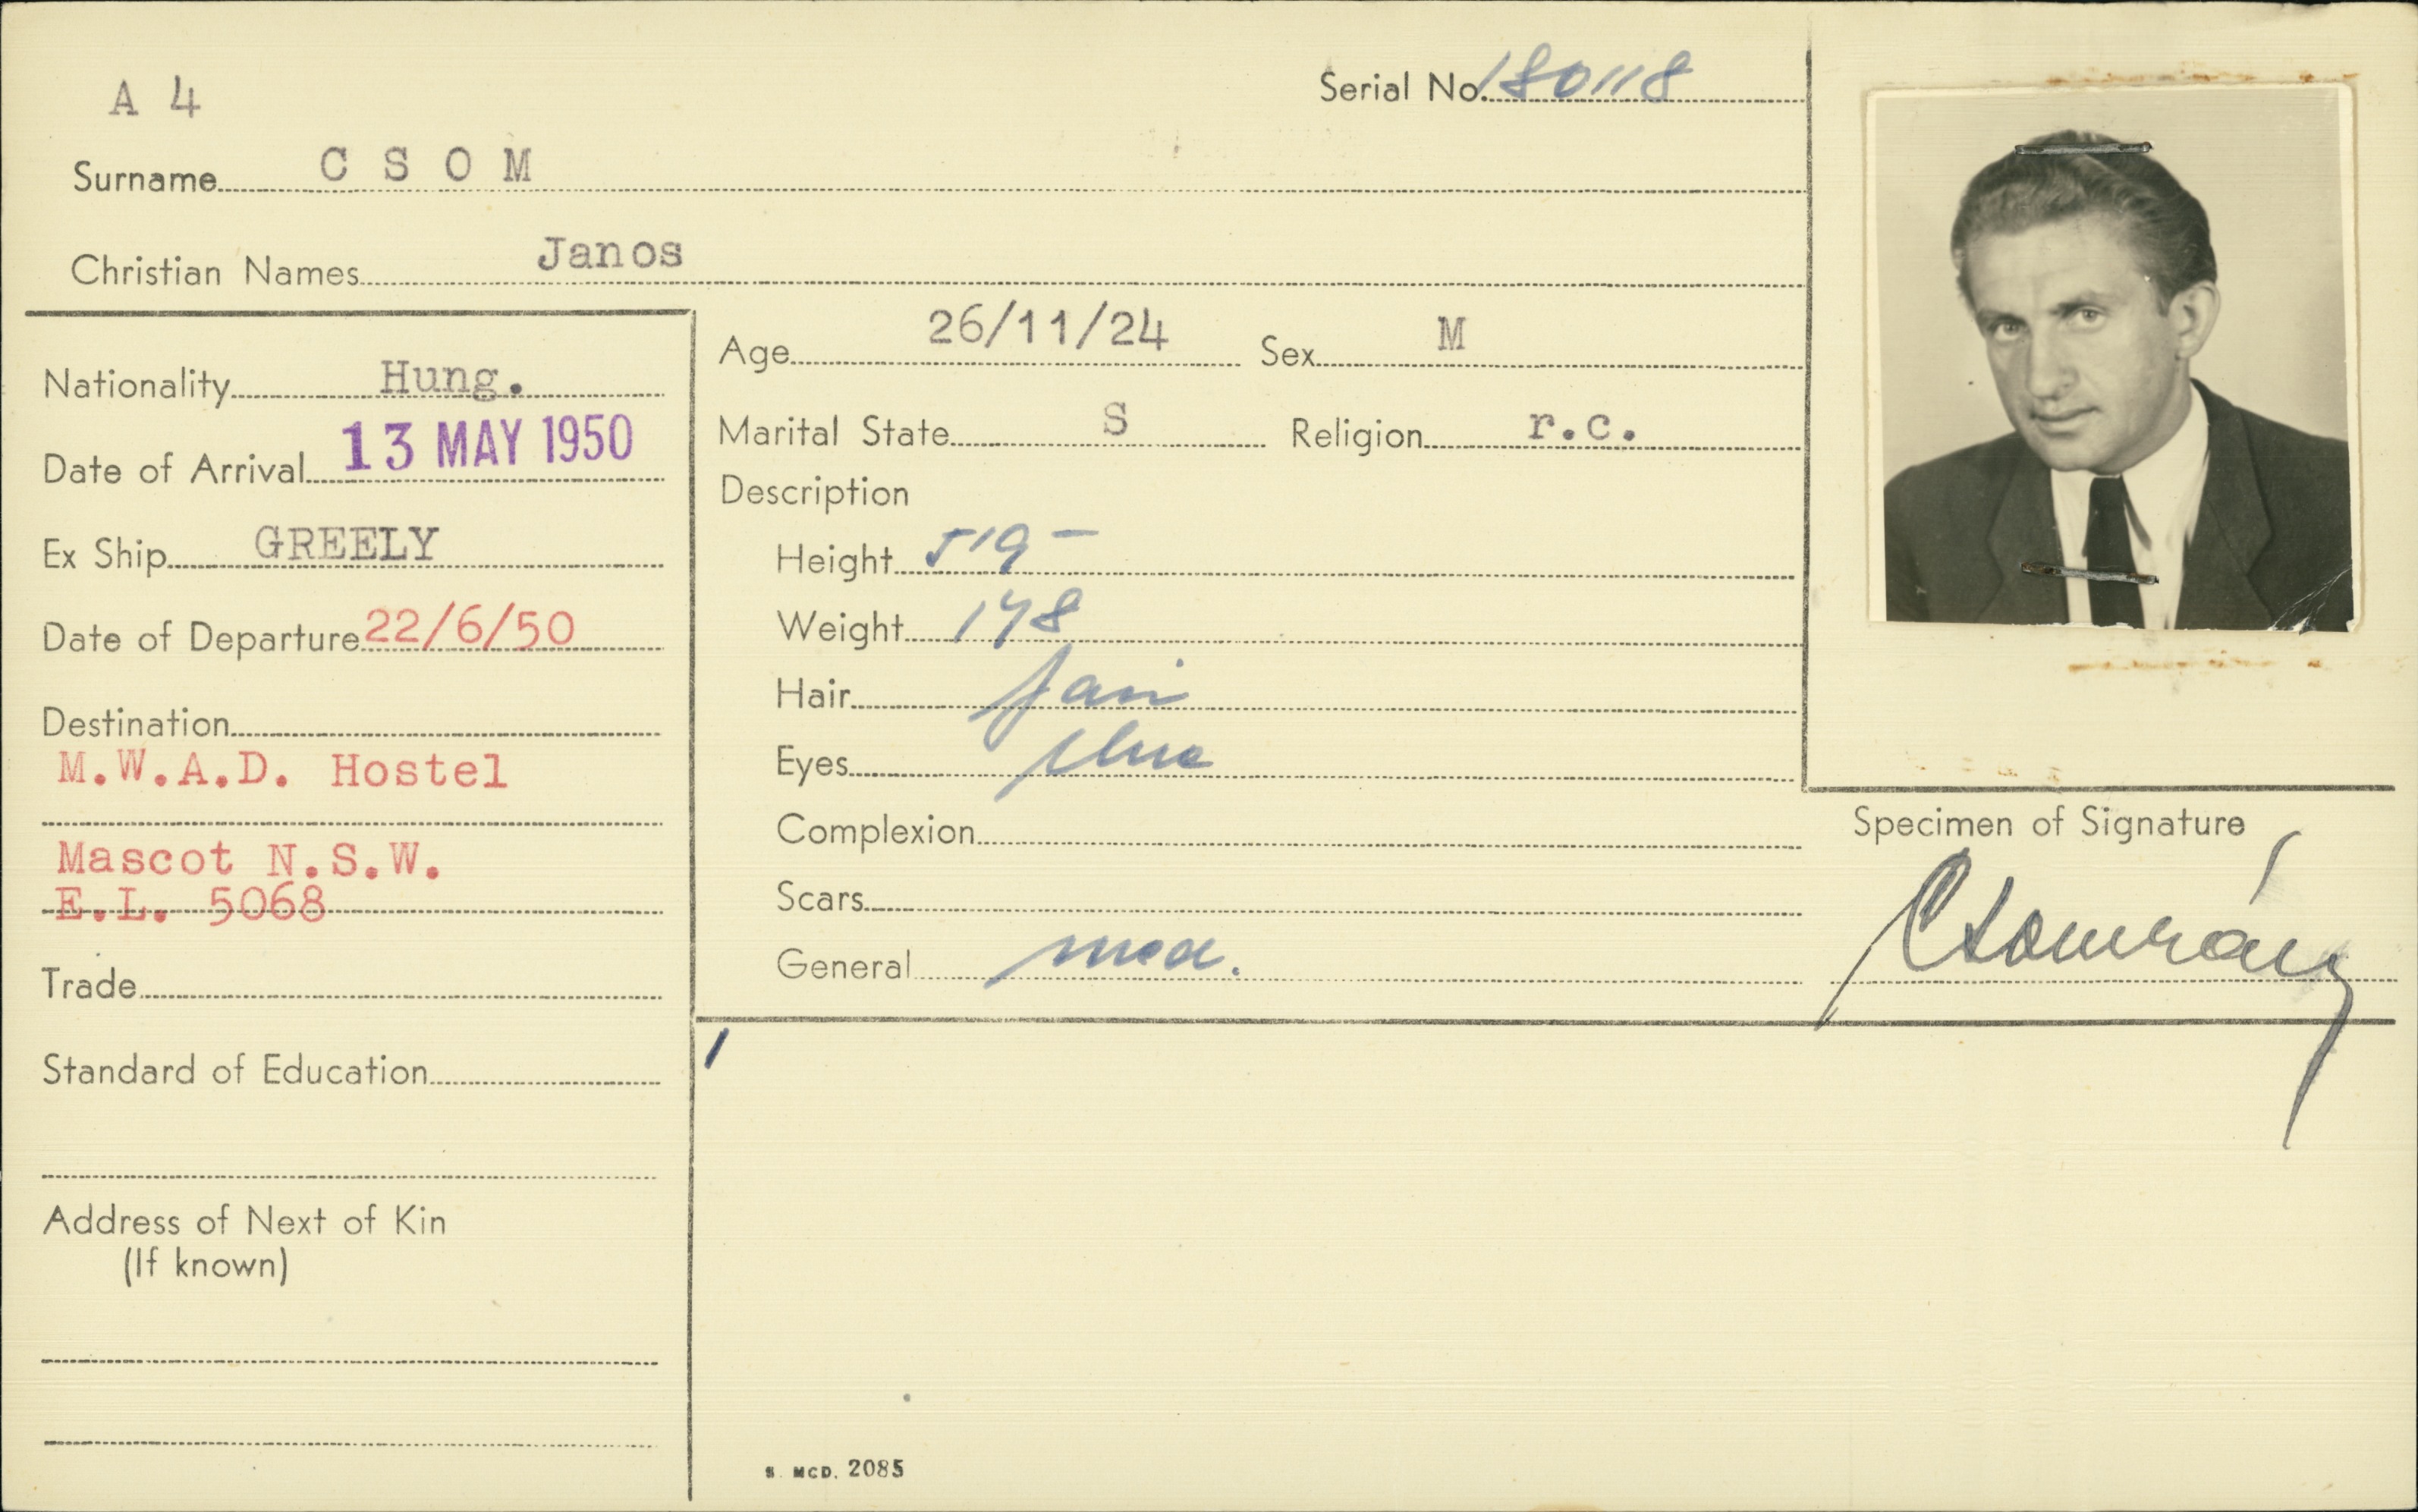 A 4
Serial No. 180118
Surname C S O M
Christian Names Janos
Nationality Hung.
Date of Arrival 13 MAY 1950
Ex Ship GREELY
Date of Departure 22/6/50
Destination
M.W.A.D. Hostel
Mascot N.S.W.
E.L. 5068
Trade
Standard of Education
Address of Next of Kin
(If known)
Age 26/11/24 Sex M
Marital State S Religion r.c.
Description
Height 5'9-
Weight 148
Hair fair
Eyes blue
Complexion
Scars
General med.
Specimen of Signature
1
S. MCD. 2085